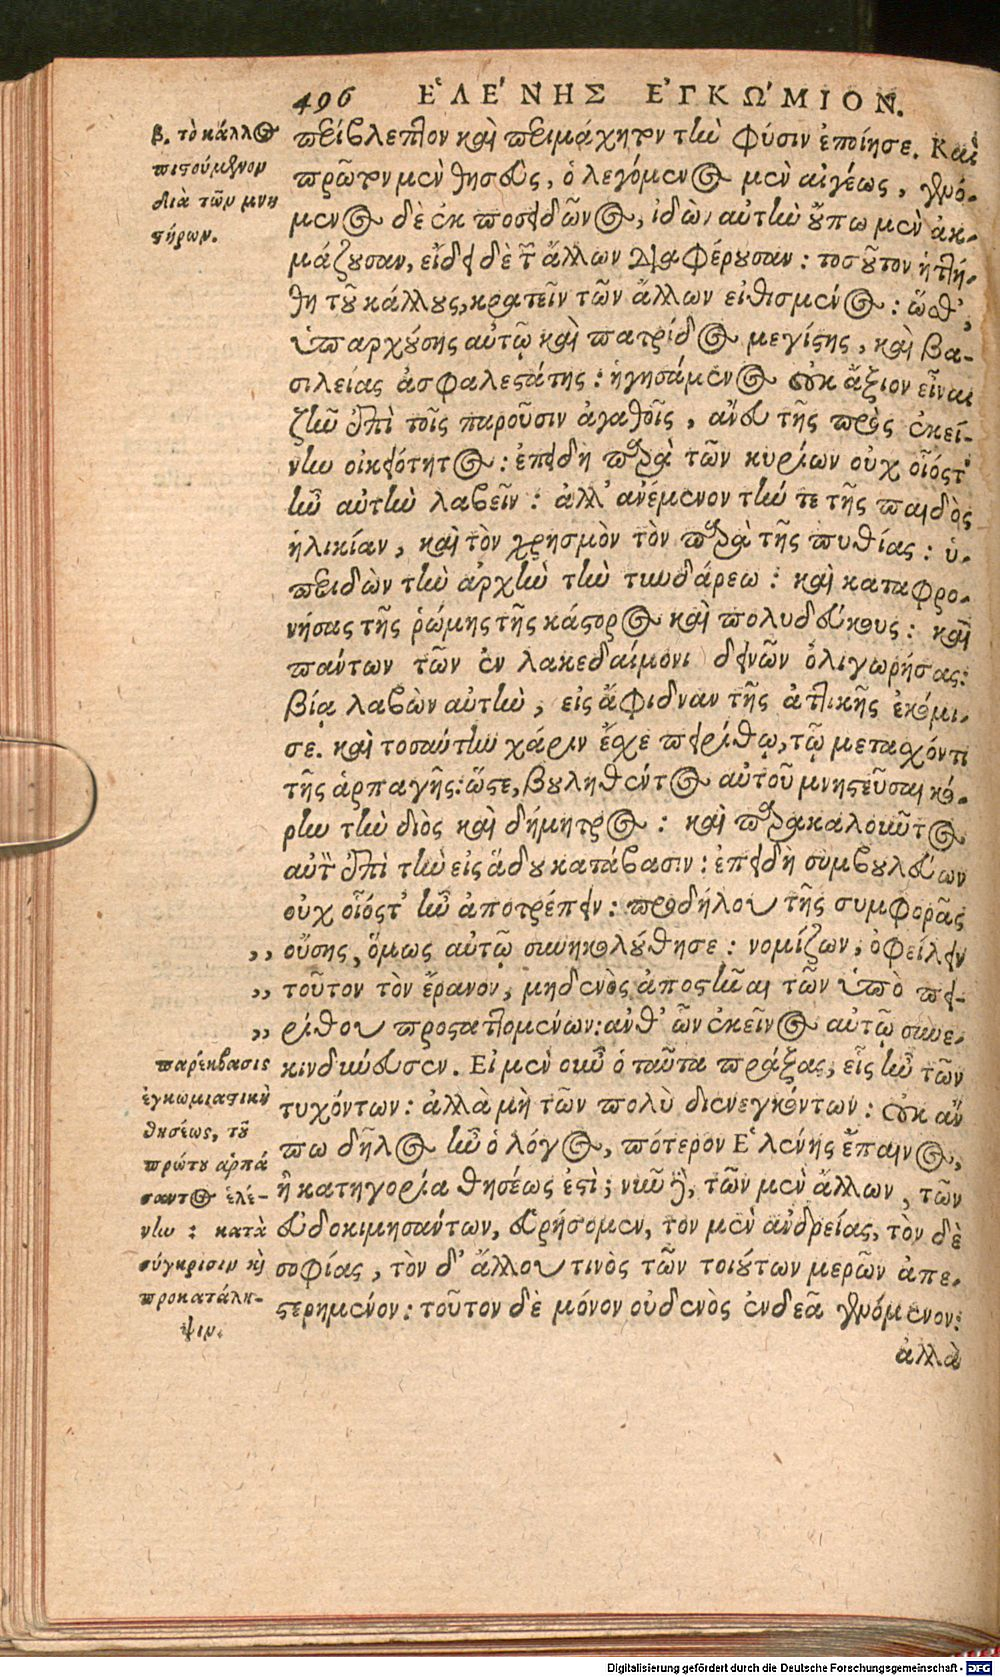 496 ἙΛΕ'ΝΗΣ ἘΓΚΩ'ΜΙΟΝ.
β. τὸ κάλλος
πιστούμενον
διὰ τῶν μνη
στήρων.
περίβλεπτον καὶ περιμάχητον τὴν φύσιν ἐποίησε. Καὶ
πρῶτον μὲν θησεὺς, ὁ λεγόμενος μὲν αἰγέως, γενό-
μενος δὲ ἐκ ποσειδῶνος, ἰδὼν αὐτὴν οὔπω μὲν ἀκ-
μάζουσαν, εἴδει δὲ τῶν ἄλλων διαφέρουσαν: τοσοῦτον ἡττή-
θη τοῦ κάλλους, κρατεῖν τῶν ἄλλων εἰθισμένος: ὥσθ',
ὑπαρχούσης αὐτῷ καὶ πατρίδος μεγίστης, καὶ βα-
σιλείας ἀσφαλεστάτης: ἡγησάμενος οὐκ ἄξιον εἶναι
ζῆν ἐπὶ τοῖς παροῦσιν ἀγαθοῖς, ἄνευ τῆς πρὸς ἐκεί-
νην οἰκειότητος: ἐπειδὴ παρὰ τῶν κυρίων οὐχ οἷόςτ'
ἦν αὐτὴν λαβεῖν: ἀλλ' ἀνέμενον τήν τε τῆς παιδὸς
ἡλικίαν, καὶ τὸν χρησμὸν τὸν παρὰ τῆς πυθίας: ὑ-
περιδὼν τὴν ἀρχὴν τὴν τυνδάρεω: καὶ καταφρο-
νήσας τῆς ῥώμης τῆς κάστορος καὶ πολυδεύκους: καὶ
πάντων τῶν ἐν λακεδαίμονι δεινῶν ὀλιγωρήσας:
βίᾳ λαβὼν αὐτὴν, εἰς ἄφιδναν τῆς ἀττικῆς ἐκόμι-
σε. καὶ τοσαύτην χάριν ἔσχε πειρίθῳ, τῷ μετασχόντι
τῆς ἁρπαγῆς: ὥστε, βουληθέντος αὐτοῦ μνηστεῦσαι κό-
ρην τὴν διὸς καὶ δήμητρος: καὶ παρακαλοῦντος
αὐτὸν ἐπὶ τὴν εἰς ᾅδου κατάβασιν: ἐπειδὴ συμβουλεύων
οὐχ οἷόςτ' ἦν ἀποτρέπειν: προδήλου τῆς συμφορᾶς
,, οὔσης, ὅμως αὐτῷ συνηκολούθησε: νομίζων, ὀφείλειν
,, τοῦτον τὸν ἔρανον, μηδενὸς ἀποστῆναι τῶν ὑπὸ πει-
,, ρίθου προσταττομένων: ἀνθ' ὧν ἐκεῖνος αὐτῷ συνε-
κινδύνευσεν. Εἰ μὲν οὖν ὁ ταῦτα πράξας, εἷς ἦν τῶν
τυχόντων: ἀλλὰ μὴ τῶν πολὺ διενεγκόντων: οὐκ ἄν
πω δῆλος ἦν ὁ λόγος, πότερον Ἑλένης ἔπαινος,
ἢ κατηγορία θησέως ἐστί; νῦν δὲ, τῶν μὲν ἄλλων, τῶν
εὐδοκιμησάντων, εὑρήσομεν, τὸν μὲν ἀνδρείας, τὸν δὲ
σοφίας, τὸν δ' ἄλλου τινὸς τῶν τοιούτων μερῶν ἀπε-
στερημένον: τοῦτον δὲ μόνον οὐδενὸς ἐνδεᾶ γενόμενον:
ἀλλὰ
παρέκβασις
ἐγκωμιαστικὴ
θησέως, τοῦ
πρώτου ἁρπά
σαντος ἑλέ-
νην: κατὰ
σύγκρισιν καὶ
προκατάλη-
ψιν.
Digitalisierung gefördert durch die Deutsche Forschungsgemeinschaft - DFG